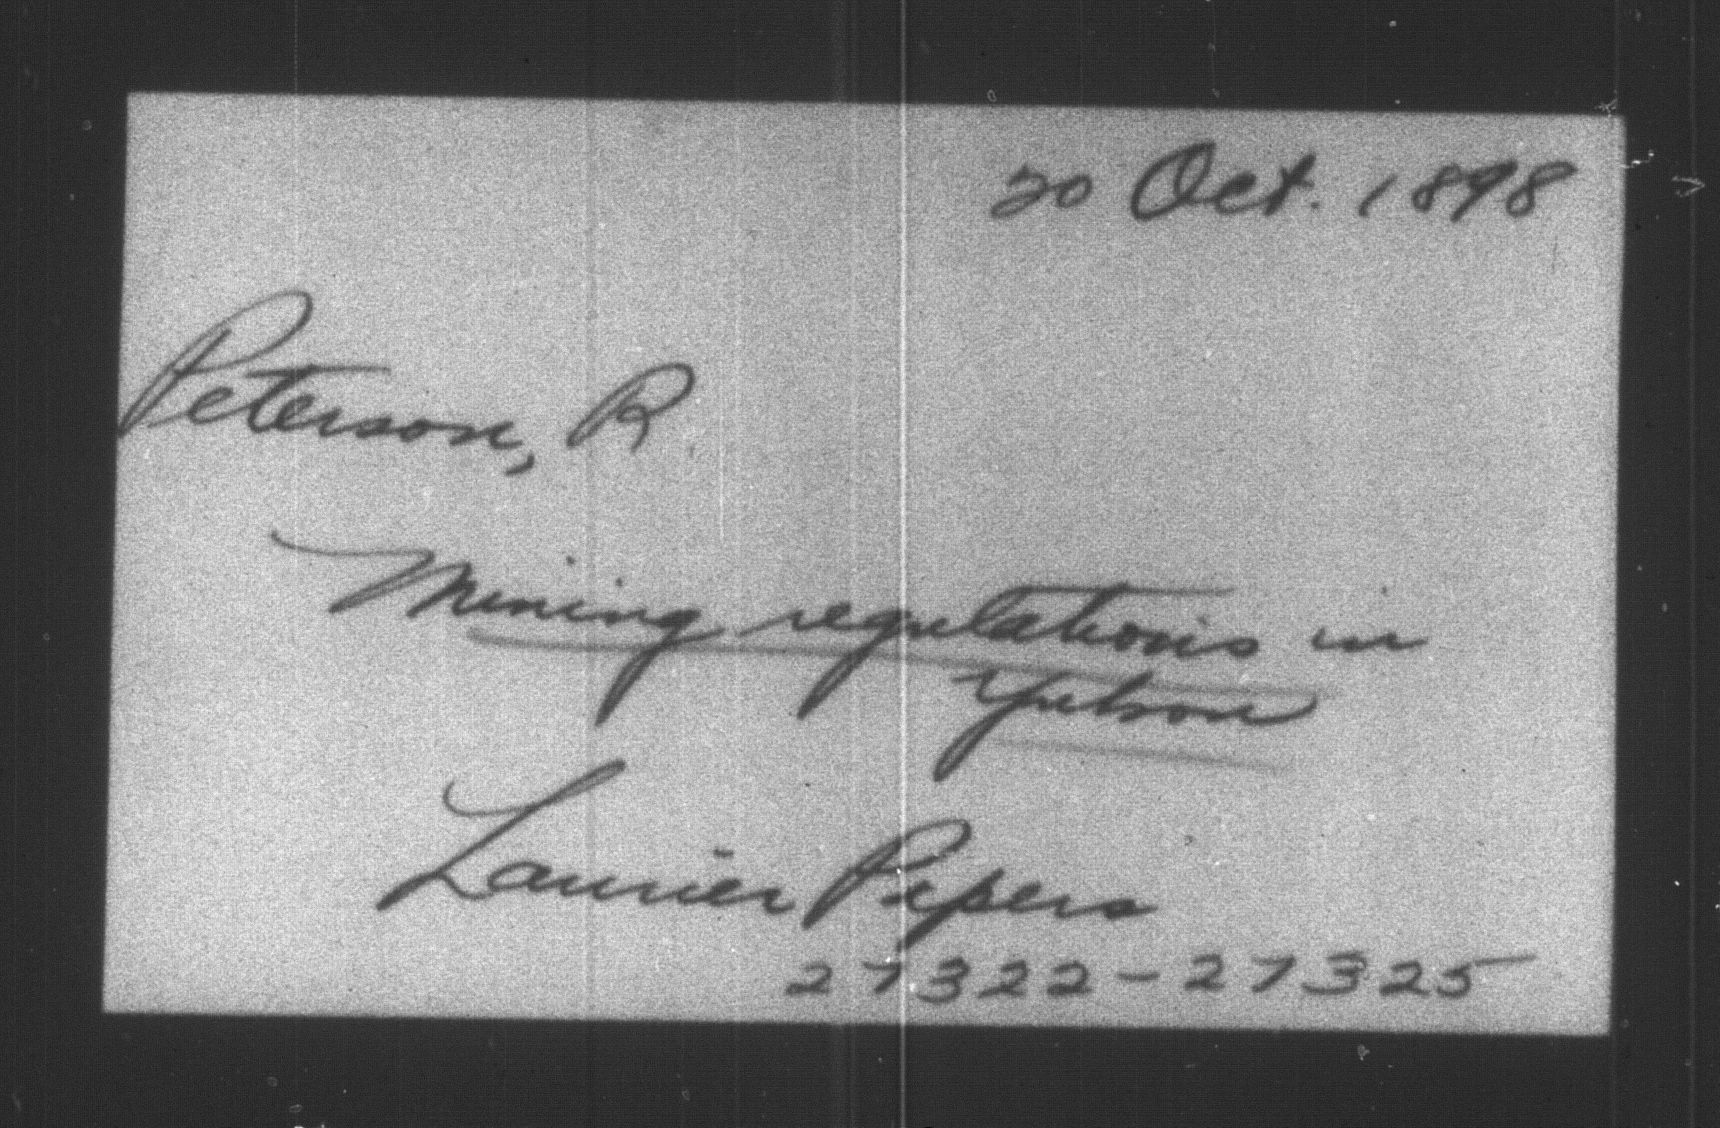 20 Oct. 1898
Peterson, R.
Mining regulations in
Yukon
Laurier Papers
27322-27325